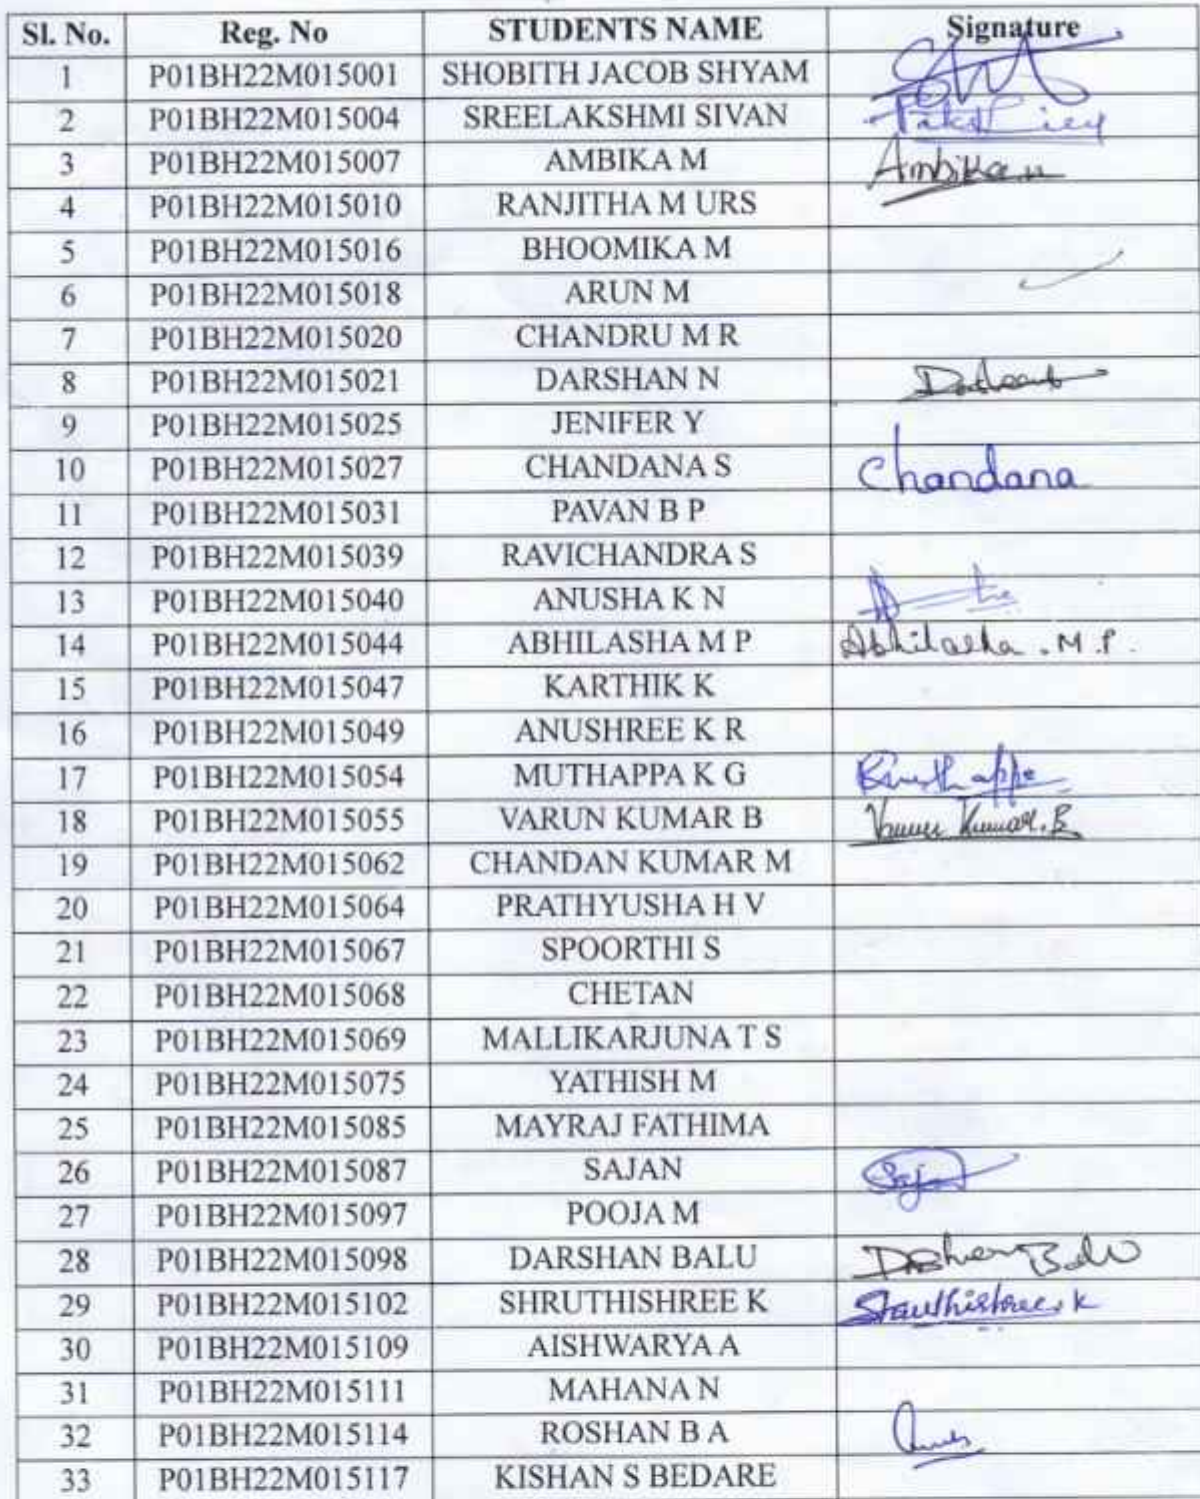 Sl. No. Reg. No STUDENTS NAME Signature
1 P01BH22M015001 SHOBITH JACOB SHYAM
2 P01BH22M015004 SREELAKSHMI SIVAN
3 P01BH22M015007 AMBIKA M Ambika.M
4 P01BH22M015010 RANJITHA M URS
5 P01BH22M015016 BHOOMIKA M
6 P01BH22M015018 ARUN M
7 P01BH22M015020 CHANDRU M R
8 P01BH22M015021 DARSHAN N
9 P01BH22M015025 JENIFER Y
10 P01BH22M015027 CHANDANA S Chandana
11 P01BH22M015031 PAVAN B P
12 P01BH22M015039 RAVICHANDRA S
13 P01BH22M015040 ANUSHA K N
14 P01BH22M015044 ABHILASHA M P Abhilasha . M . P .
15 P01BH22M015047 KARTHIK K
16 P01BH22M015049 ANUSHREE K R
17 P01BH22M015054 MUTHAPPA K G
18 P01BH22M015055 VARUN KUMAR B Varun Kumar. B
19 P01BH22M015062 CHANDAN KUMAR M
20 P01BH22M015064 PRATHYUSHA H V
21 P01BH22M015067 SPOORTHI S
22 P01BH22M015068 CHETAN
23 P01BH22M015069 MALLIKARJUNA T S
24 P01BH22M015075 YATHISH M
25 P01BH22M015085 MAYRAJ FATHIMA
26 P01BH22M015087 SAJAN Sajan
27 P01BH22M015097 POOJA M
28 P01BH22M015098 DARSHAN BALU Darshan Balu
29 P01BH22M015102 SHRUTHISHREE K Shruthishree. K
30 P01BH22M015109 AISHWARYA A
31 P01BH22M015111 MAHANA N
32 P01BH22M015114 ROSHAN B A
33 P01BH22M015117 KISHAN S BEDARE